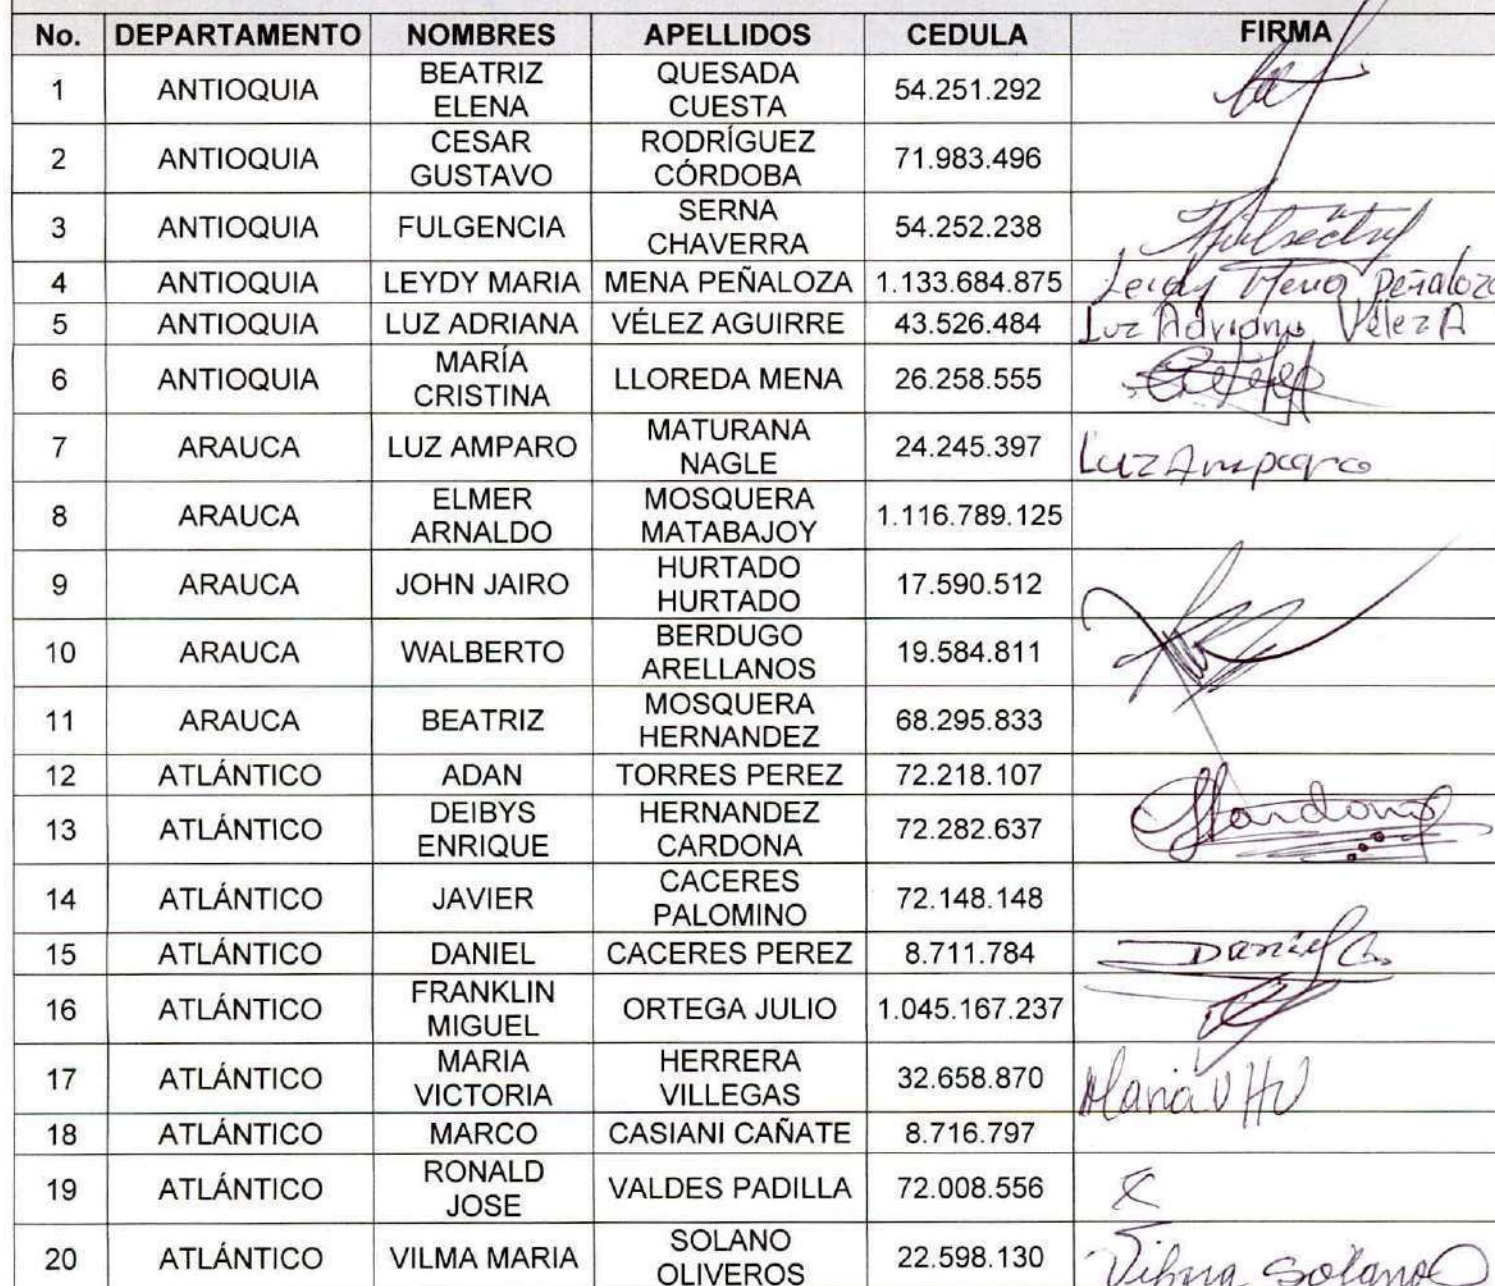 No. DEPARTAMENTO NOMBRES APELLIDOS CEDULA FIRMA
1 ANTIOQUIA BEATRIZ ELENA QUESADA CUESTA 54.251.292
2 ANTIOQUIA CESAR GUSTAVO RODRÍGUEZ CÓRDOBA 71.983.496
3 ANTIOQUIA FULGENCIA SERNA CHAVERRA 54.252.238
4 ANTIOQUIA LEYDY MARIA MENA PEÑALOZA 1.133.684.875 Leidy Mena Peñaloza
5 ANTIOQUIA LUZ ADRIANA VÉLEZ AGUIRRE 43.526.484 Luz Adriana Vélez A
6 ANTIOQUIA MARÍA CRISTINA LLOREDA MENA 26.258.555
7 ARAUCA LUZ AMPARO MATURANA NAGLE 24.245.397 Luz Amparo
8 ARAUCA ELMER ARNALDO MOSQUERA MATABAJOY 1.116.789.125
9 ARAUCA JOHN JAIRO HURTADO HURTADO 17.590.512
10 ARAUCA WALBERTO BERDUGO ARELLANOS 19.584.811
11 ARAUCA BEATRIZ MOSQUERA HERNANDEZ 68.295.833
12 ATLÁNTICO ADAN TORRES PEREZ 72.218.107
13 ATLÁNTICO DEIBYS ENRIQUE HERNANDEZ CARDONA 72.282.637
14 ATLÁNTICO JAVIER CACERES PALOMINO 72.148.148
15 ATLÁNTICO DANIEL CACERES PEREZ 8.711.784 Daniel
16 ATLÁNTICO FRANKLIN MIGUEL ORTEGA JULIO 1.045.167.237
17 ATLÁNTICO MARIA VICTORIA HERRERA VILLEGAS 32.658.870 Maria V HV
18 ATLÁNTICO MARCO CASIANI CAÑATE 8.716.797
19 ATLÁNTICO RONALD JOSE VALDES PADILLA 72.008.556
20 ATLÁNTICO VILMA MARIA SOLANO OLIVEROS 22.598.130 Vilma Solano